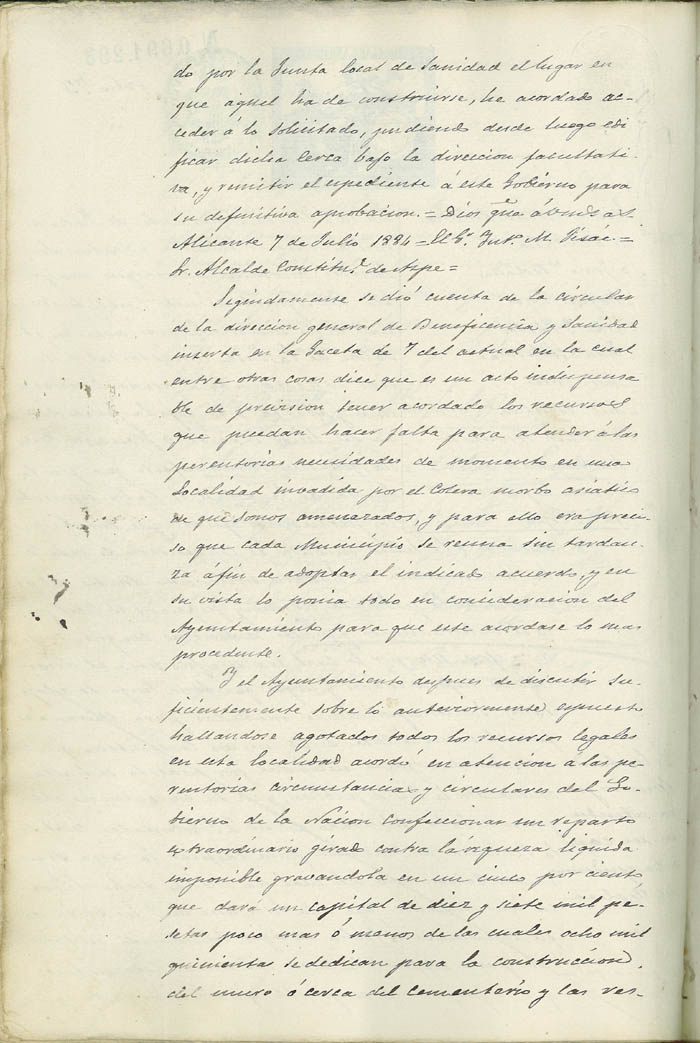 do por la Junta local de Sanidad el lugar en
que aquel ha de construirse, he acordado ac-
ceder á lo solicitado, pudiendo desde luego edi
ficar dicha cerca bajo la direccion facultati-
va, y remitir el espediente á este Gobierno para
su definitiva aprobacion.= Dios gue á
Alicante 7 de Julio 1884 = El Gr. Intº. M.
Sr. Alcalde Constitl. de Aspe=
Segundamente se dió cuenta de la circular
de la direccion general de Beneficencia y Sanidad
inserta en la Gaceta de 7 del actual en la cual
entre otras cosas dice que es un acto indispensa
ble de prevision tener acordado los recursos
que puedan hacer falta para atender á las
perentorias necesidades de momento en una
localidad invadida por el Colera morbo asiatico
de que somos amenazados, y para ello era preci-
so que cada Municipio se reuna sin tardan-
za áfin de adoptar el indicado acuerdo, y en
su vista lo ponia todo en consideracion del
Ayuntamiento para que este acordase lo mas
procedente.
Y el Ayuntamiento despues de discutir su-
ficientemente sobre lo anteriormente espuesto
hallandose agotados todos los recursos legales
en esta localidad acordó en atencion á las pe-
rentorias circunstancias y circulares del Go-
bierno de la Nacion confeccionar un reparto
extraordinario girado contra la riqueza liquida
imponible gravandola en un cinco por ciento
que dará un capital de diez y siete mil pe-
setas poco mas ó menos de las cuales ocho mil
quinientas se dedican para la construccion
del muro ó cerca del cementerio y las res-